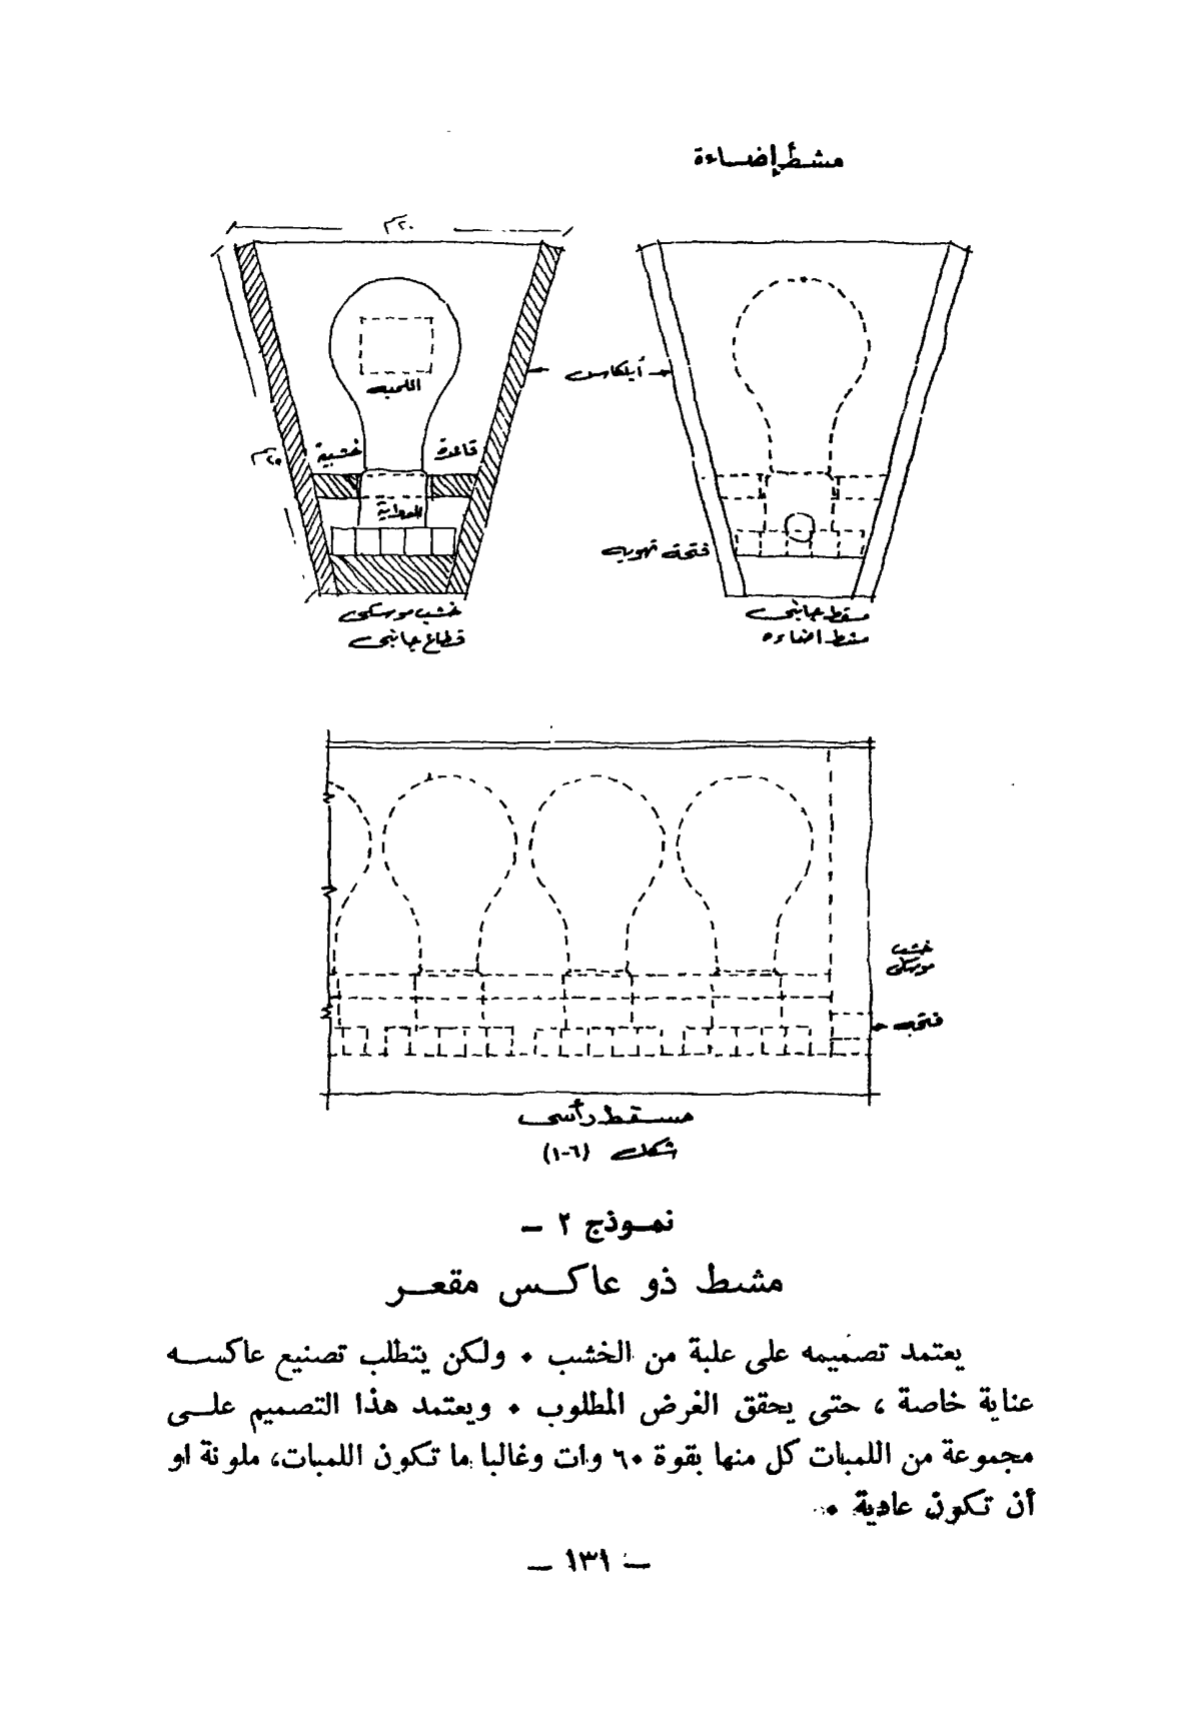 مشط إضاءة
٢٠سم
أبلكاس
اللمبة
قاعدة خشبية
٢٥سم
الدواية
فتحة تهوية
خشب موسكى
قطاع جانبى
مسقط جانبى
مشط اضاءه
خشب
موسكى
فتحة
مسقط رأسى
شكل (٦-١)
نموذج ٢ –
مشط ذو عاكس مقعر
يعتمد تصميمه على علبة من الخشب ٠ ولكن يتطلب تصنيع عاكسه
عناية خاصة ، حتى يحقق الغرض المطلوب ٠ ويعتمد هذا التصميم على
مجموعة من اللمبات كل منها بقوة ٦٠ وات وغالبا ما تكون اللمبات، ملونة او
أن تكون عادية ٠
– ١٣١ –